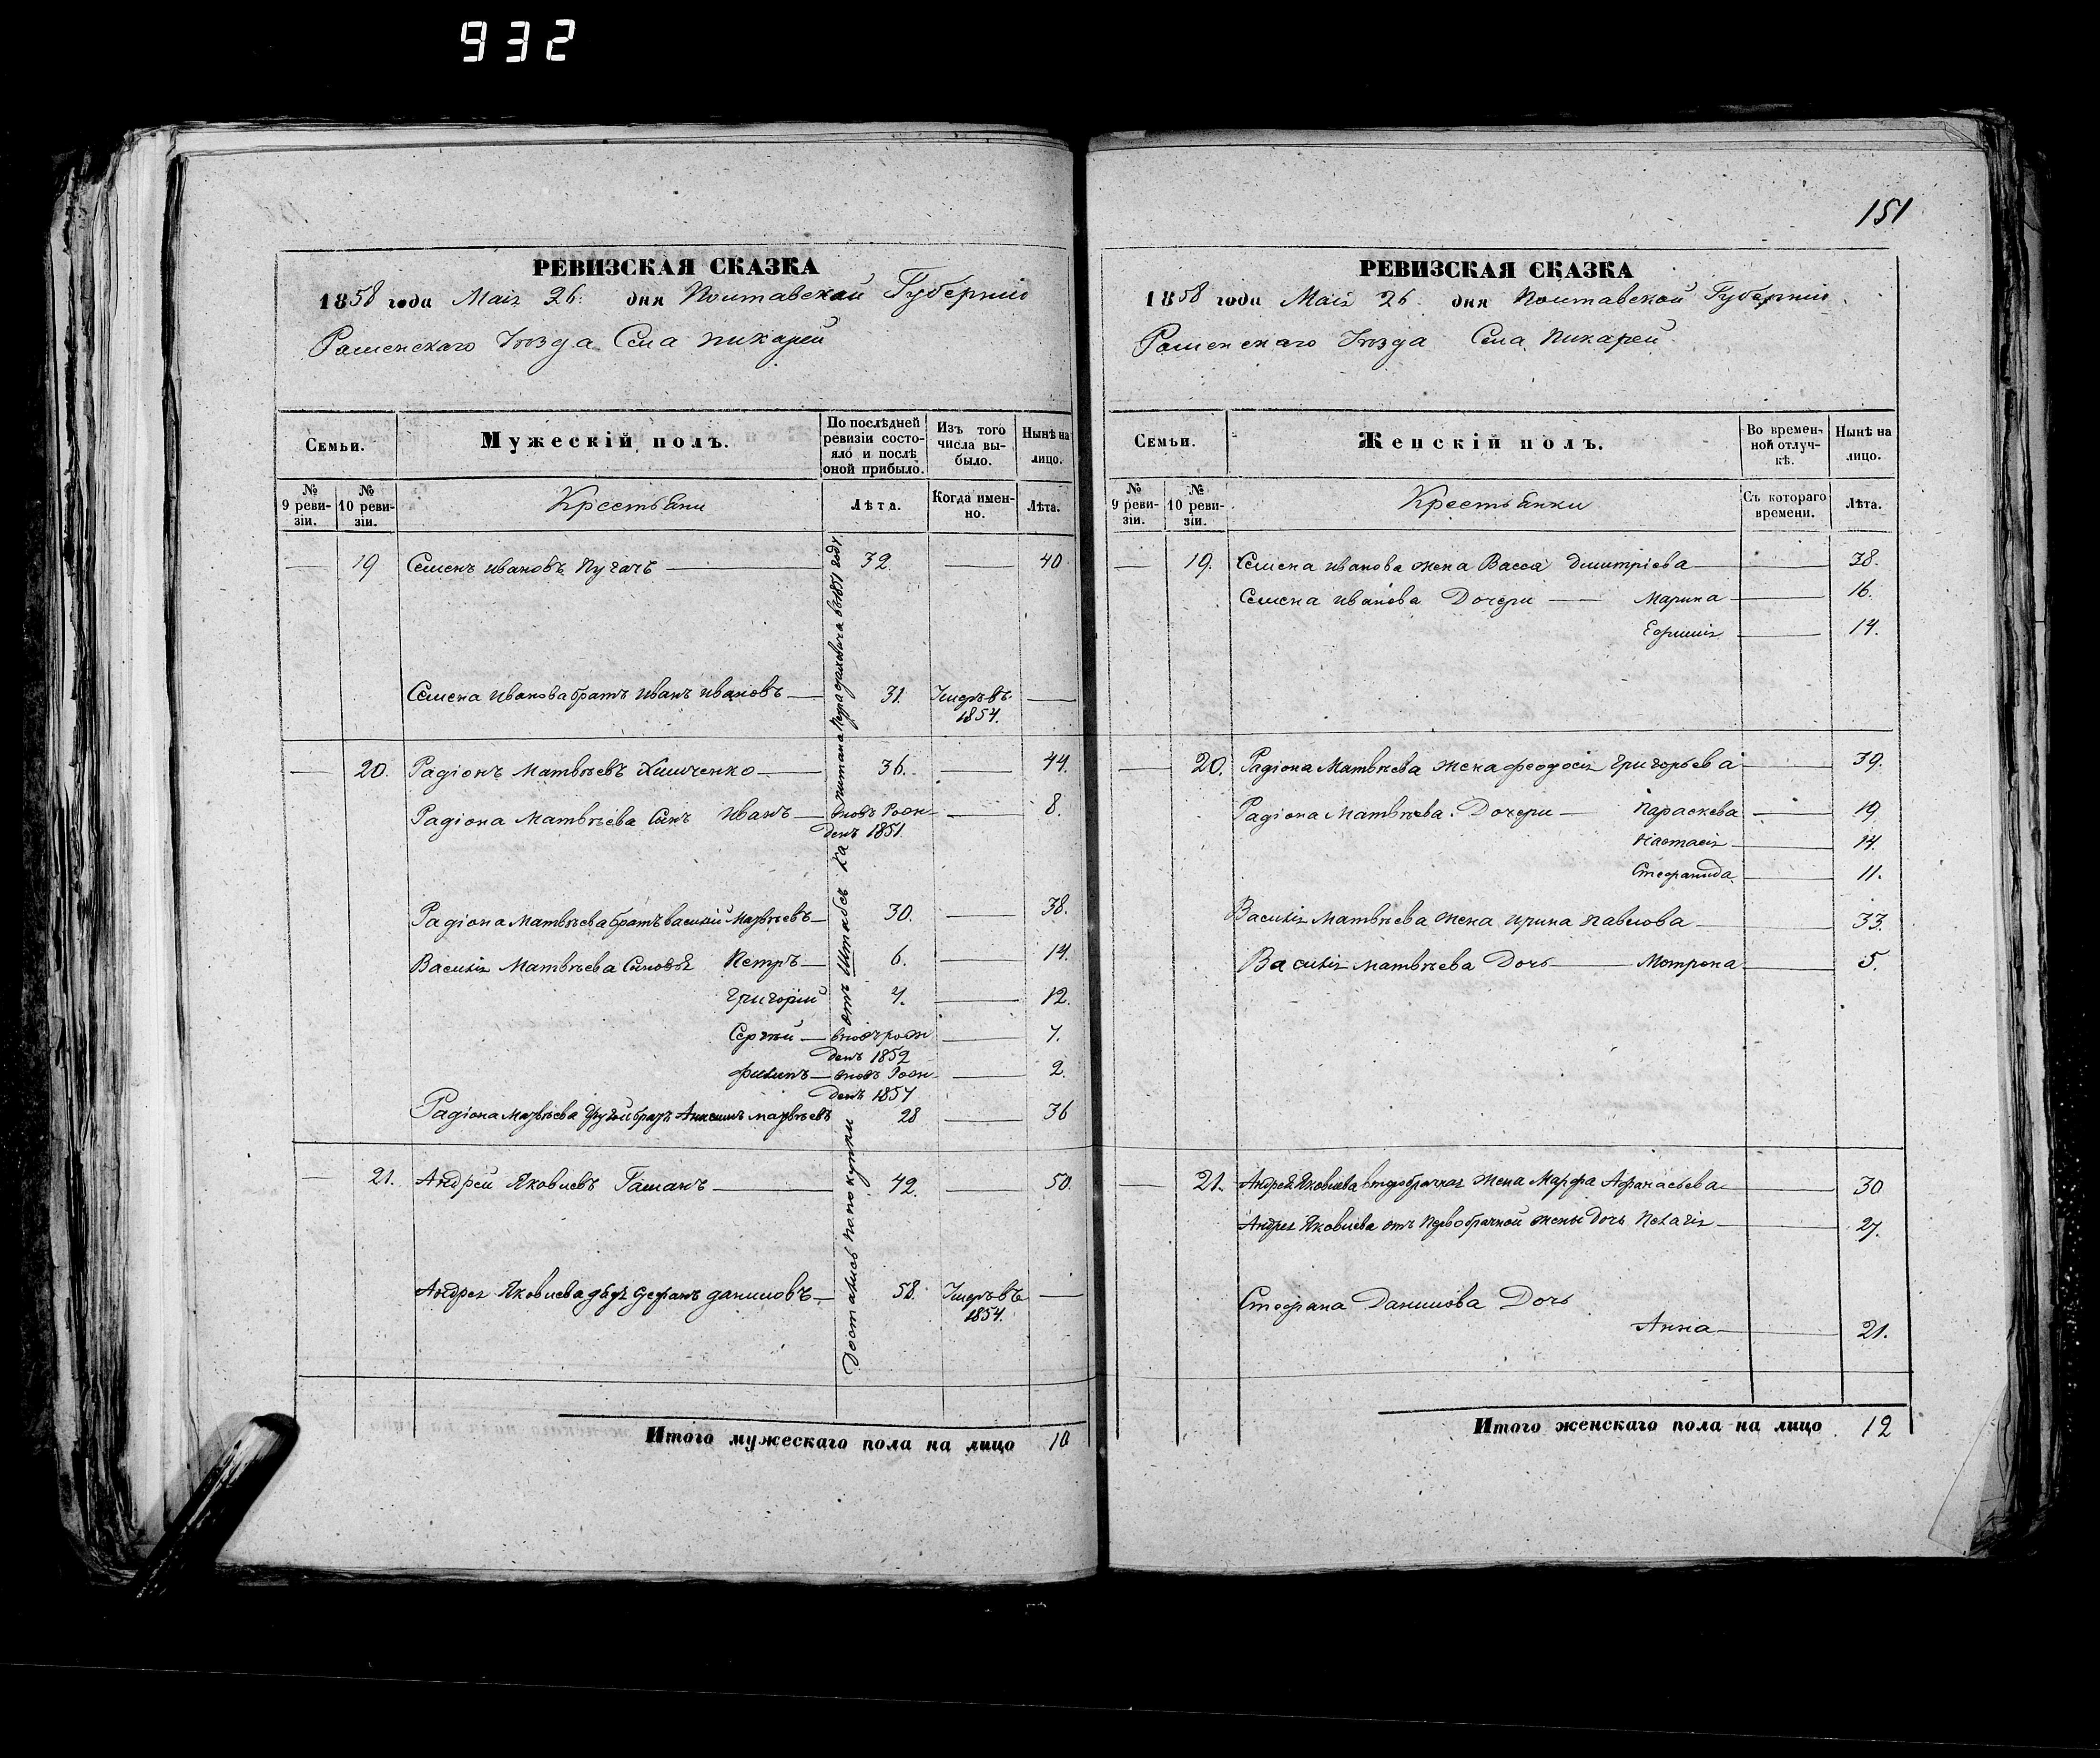 932
151
РЕВИЗСКАЯ СКАЗКА
1858 года Маія 26. дня Полтавской Губерніи
Роменскаго Уѣзда Села Пикарей
Семьи.
Мужескій полъ.
По послѣдней ревизіи состояло и послѣ оной прибыло.
Изъ того числа выбыло.
Нынѣ на лицо.
№ 9 ревизіи.
№ 10 ревизіи.
Крестьяни
Лѣта.
Когда именно.
Лѣта.
19 Семенъ Ивановъ Пугачъ 32. 40
Семена Иванова братъ Иванъ Ивановъ 31. Умеръ въ 1854.
20. Радіонъ Матвѣевъ 36. 44.
Радіона Матвѣева Сынъ Иванъ вновь Рож-
денъ 1851. 8.
Радіона Матвѣева братъ Василій Матвѣевъ 30. 38.
Василія Матвѣева Сыновья Петръ 6. 14.
Григорій 4. 12.
Сергѣй вновь рож
денъ 1852 7.
Филипъ вновь Рож-
денъ 1857 2.
Радіона Матвѣева другой братъ Анисимъ Матвѣевъ 28 36
21. Андрей Яковлевъ Гаманъ 42. 50
Андрея Яковлева дядя Стефанъ Даниловъ 58. Умеръ въ 1854.
Достались по покупки отъ Штабсъ Капитана въ 1851 году
Итого мужескаго пола на лицо 10
РЕВИЗСКАЯ СКАЗКА
1858 года Маія 26. дня Полтавской Губерніи.
Роменскаго Уѣзда Села Пикарей
Семьи.
Женскій полъ.
Во временной отлучкѣ.
Нынѣ на лицо.
№ 9 ревизіи.
№ 10 ревизіи.
Крестьянки
Съ котораго времени.
Лѣта.
19. Семена Иванова жена Васса Дмитріева 38.
Семена Иванова Дочери Марина 16.
Ефимія 14.
20. Радіона Матвѣева жена Феодосія Григорьева 39.
Радіона Матвѣева. Дочери Параскева 19
Настасія 14.
Стефанида 11.
Василія Матвѣева жена Ирина Павлова 33.
Василія Матвѣева Дочь Мотрона 5.
21. Андрея Яковлева второбрачная жена Марфа Афанасьева 30
Андрея Яковлева отъ Первобрачной жены дочь Пелагія 27.
Стефана Данилова Дочь
Анна 21.
Итого женскаго пола на лицо 12